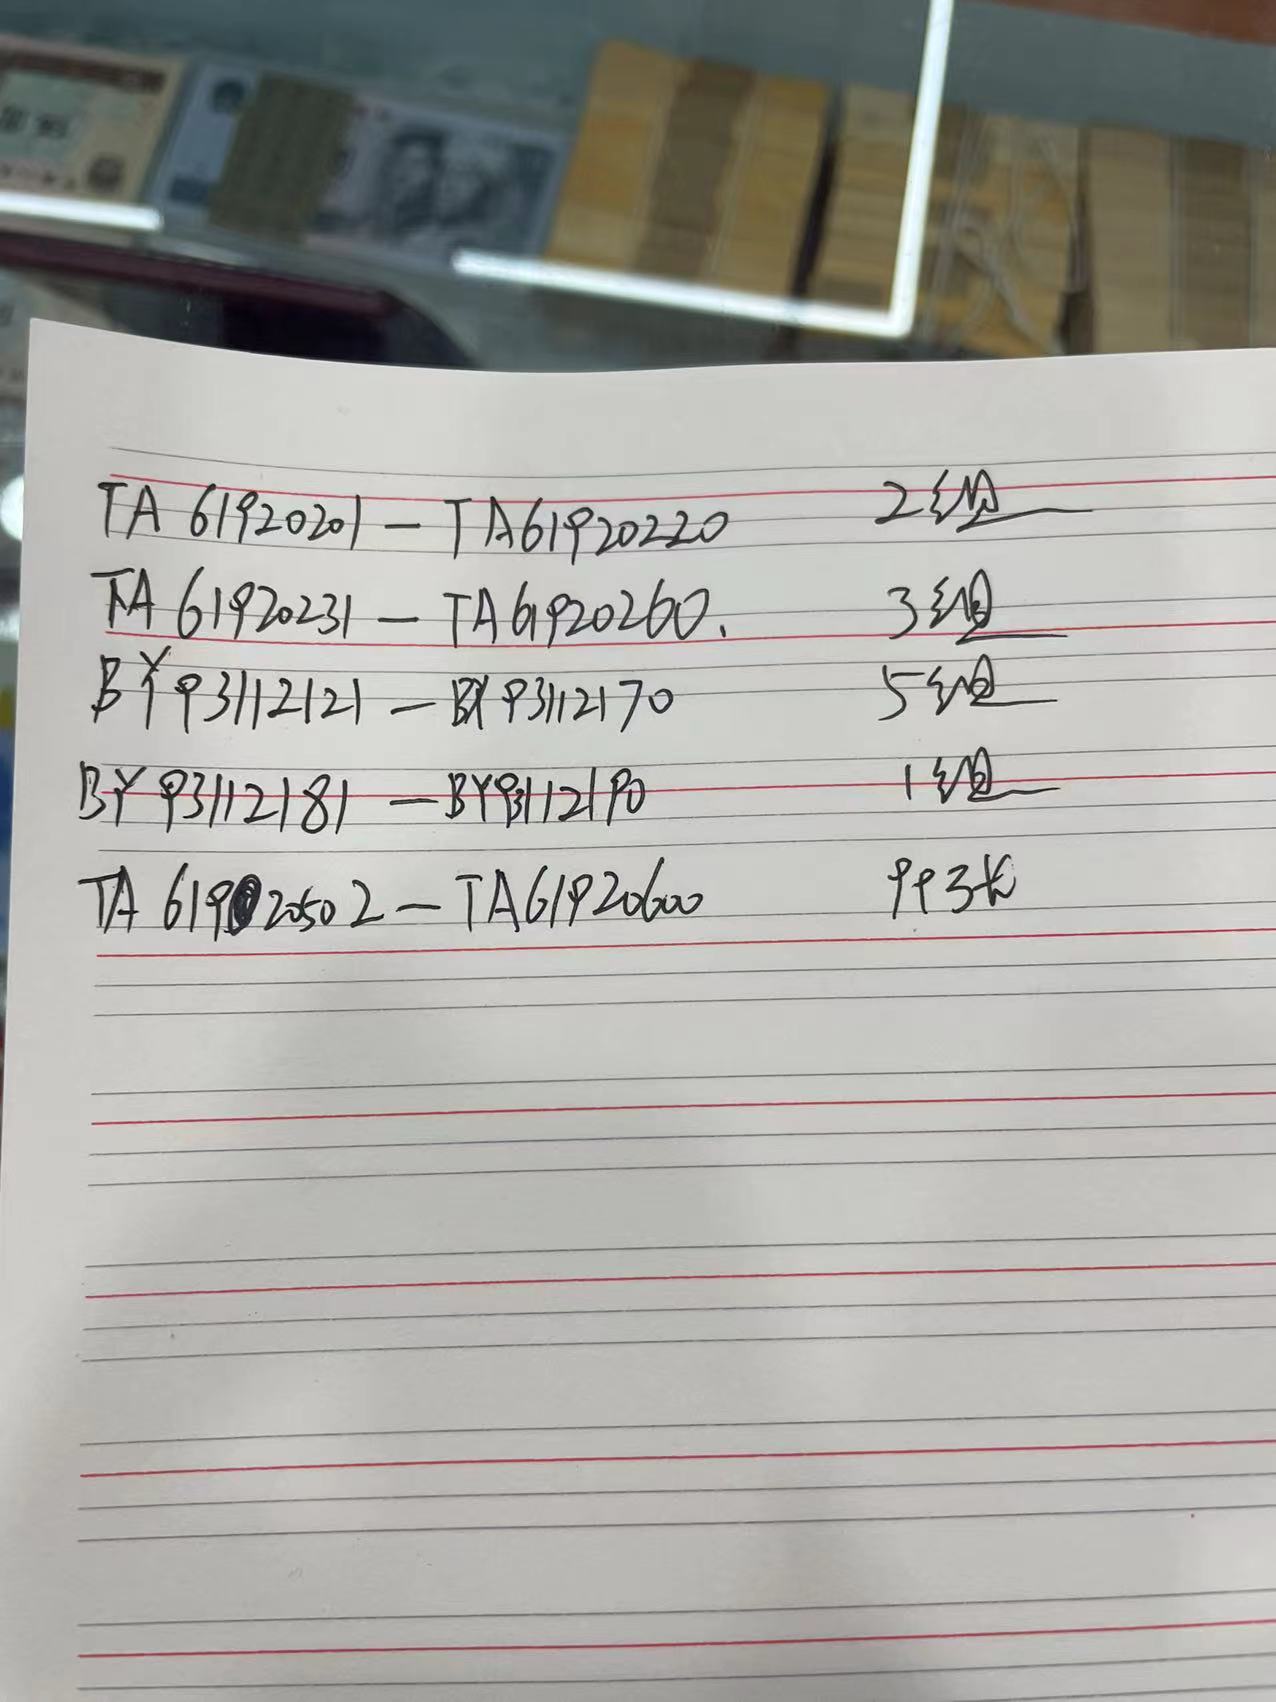 TA 61920201 — TA61920220 2组
TA 61920231 — TA61920260. 3组
BY93112121 — BY93112170 5组
BY93112181 — BY93112190 1组
TA 61920502 — TA61920600 993长